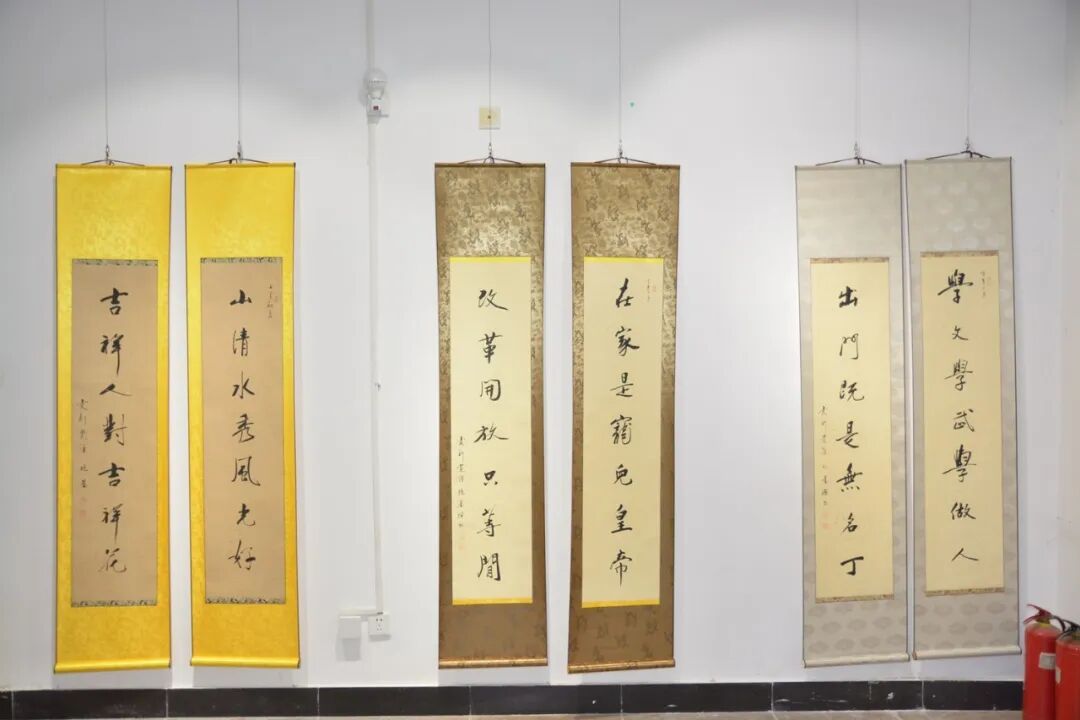 山清水秀風光好
吉祥人對吉祥花
在家是寵兒皇帝
改革開放只等閒
學文學武學做人
出門既是無名丁